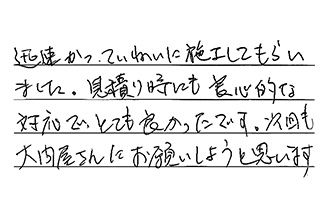 迅速かつ、ていねいに施工してもらい
ました。見積り時にも良心的な
対応で、とても良かったです。次回も
大内屋さんにお願いしようと思います